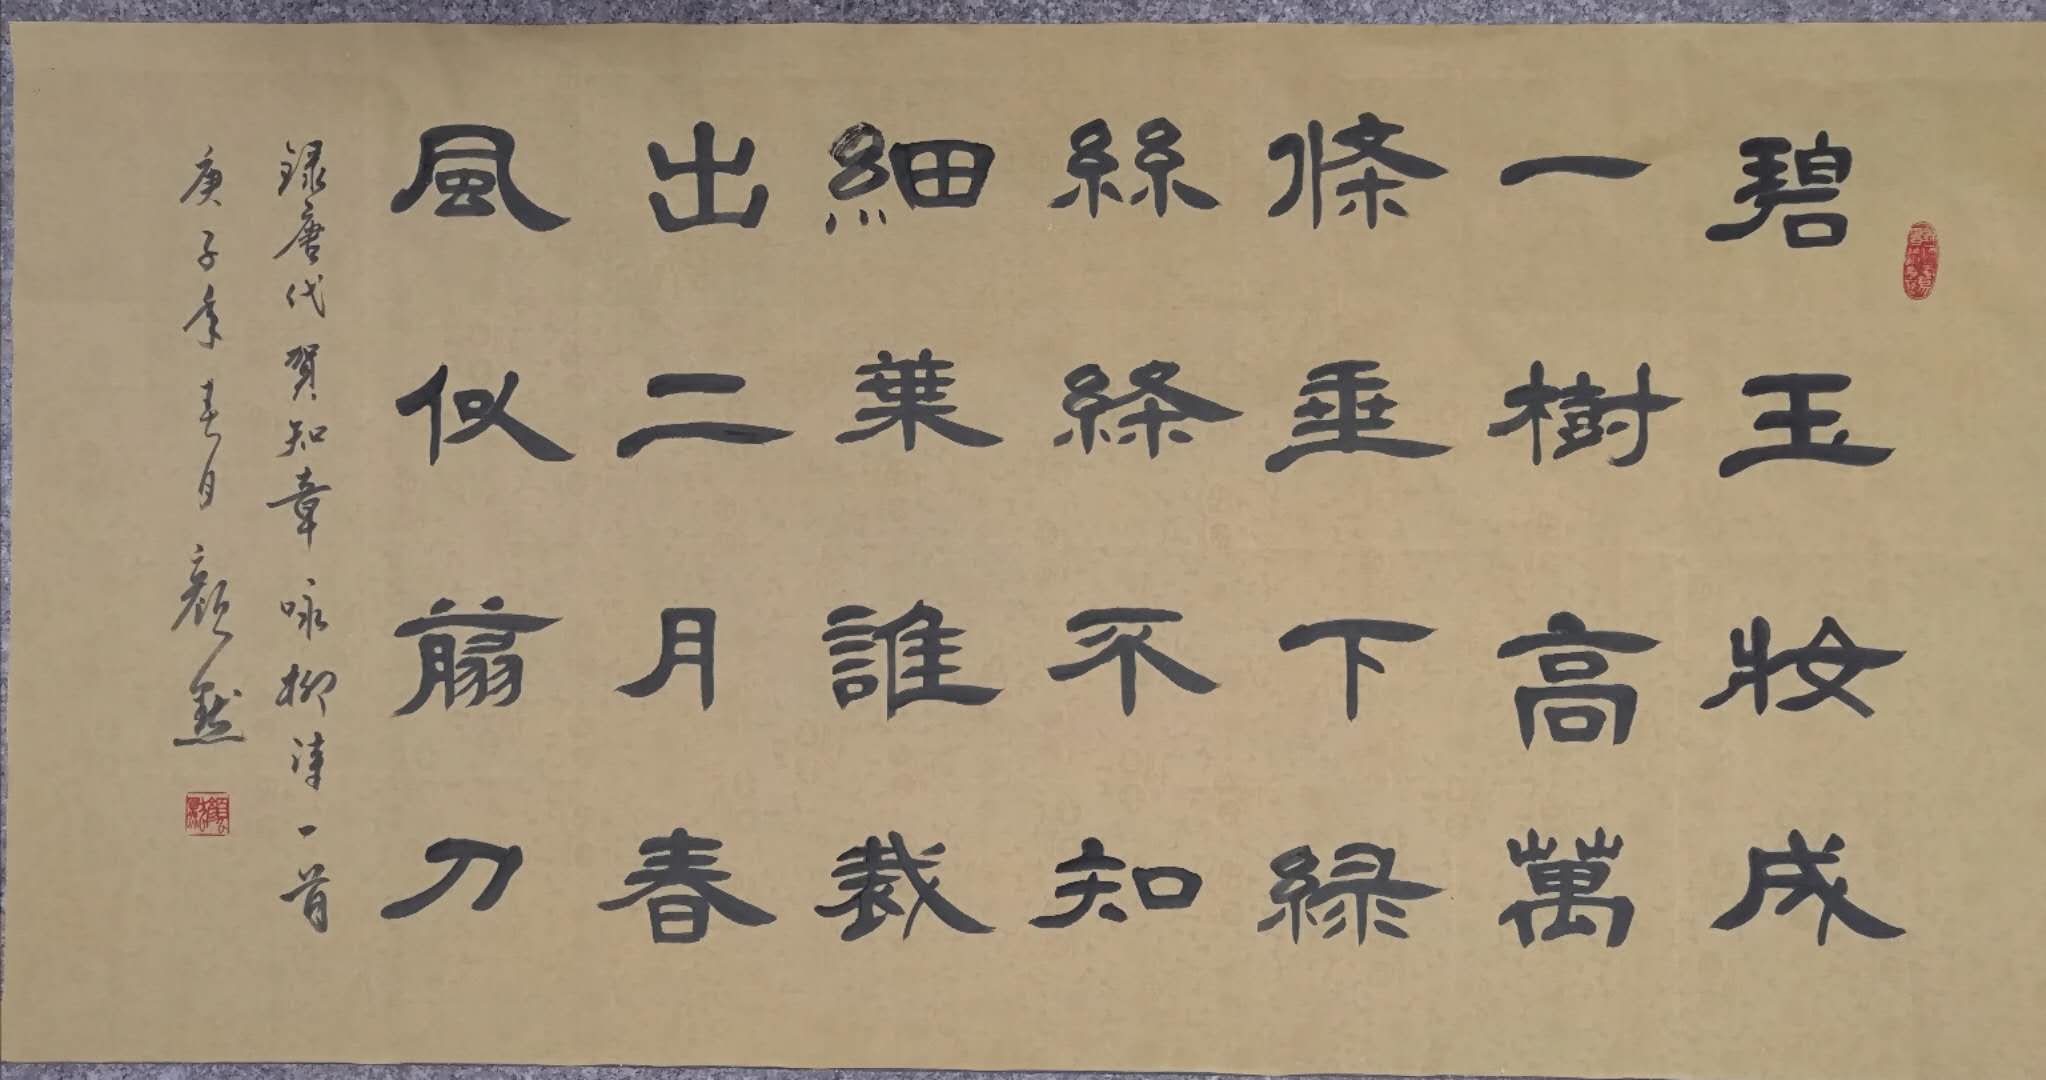 碧玉妝成
一樹高萬
條垂下綠
絲绦不知
細葉誰裁
出二月春
風似翦刀
録唐代賀知章咏柳诗一首
庚子年春月顏默